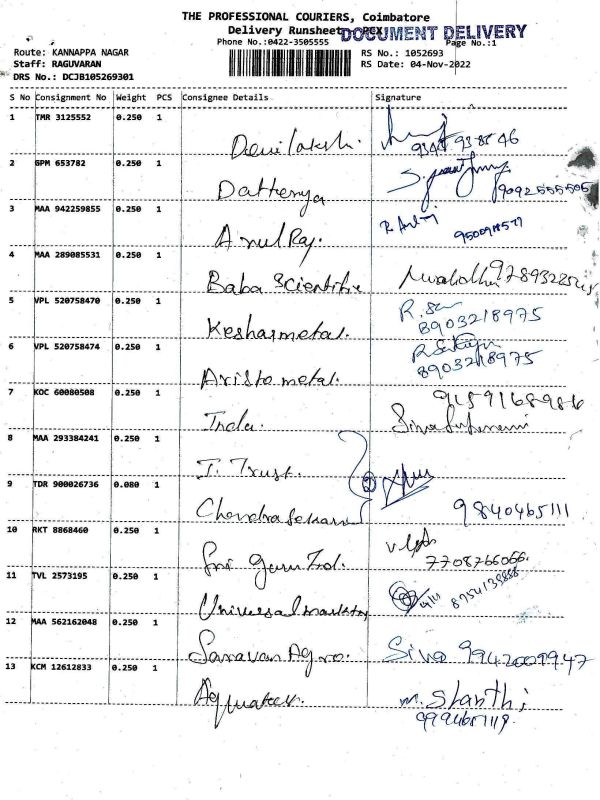 THE PROFESSIONAL COURIERS, Coimbatore
Delivery Runsheet - PCX
DOCUMENT DELIVERY
Phone No.:0422-3505555
Page No.:1
Route: KANNAPPA NAGAR
RS No.: 1052693
Staff: RAGUVARAN
RS Date: 04-Nov-2022
DRS No.: DCJB105269301
S No Consignment No Weight PCS Consignee Details Signature
1 TMR 3125552 0.250 1
2 GPM 653782 0.250 1
Dattenya
9092555505
3 MAA 942259855 0.250 1
Arul Raj.
4 MAA 289085531 0.250 1
Baba Scientific
5 VPL 520758470 0.250 1
Keshar metal.
8903218975
6 VPL 520758474 0.250 1
Aristo metal.
8903218975
7 KOC 60080508 0.250 1
Inda.
8 MAA 293384241 0.250 1
I. Trust.
9 TDR 900026736 0.080 1
Chandrasekaran
9840465111
10 RKT 8868460 0.250 1
Sri Guru Ind.
7708766066.
11 TVL 2573195 0.250 1
Universal marktng
8754138888
12 MAA 562162048 0.250 1
Saravan Agro.
Siva 9942009947
13 KCM 12612833 0.250 1
Aquatex.
m. Shanthi